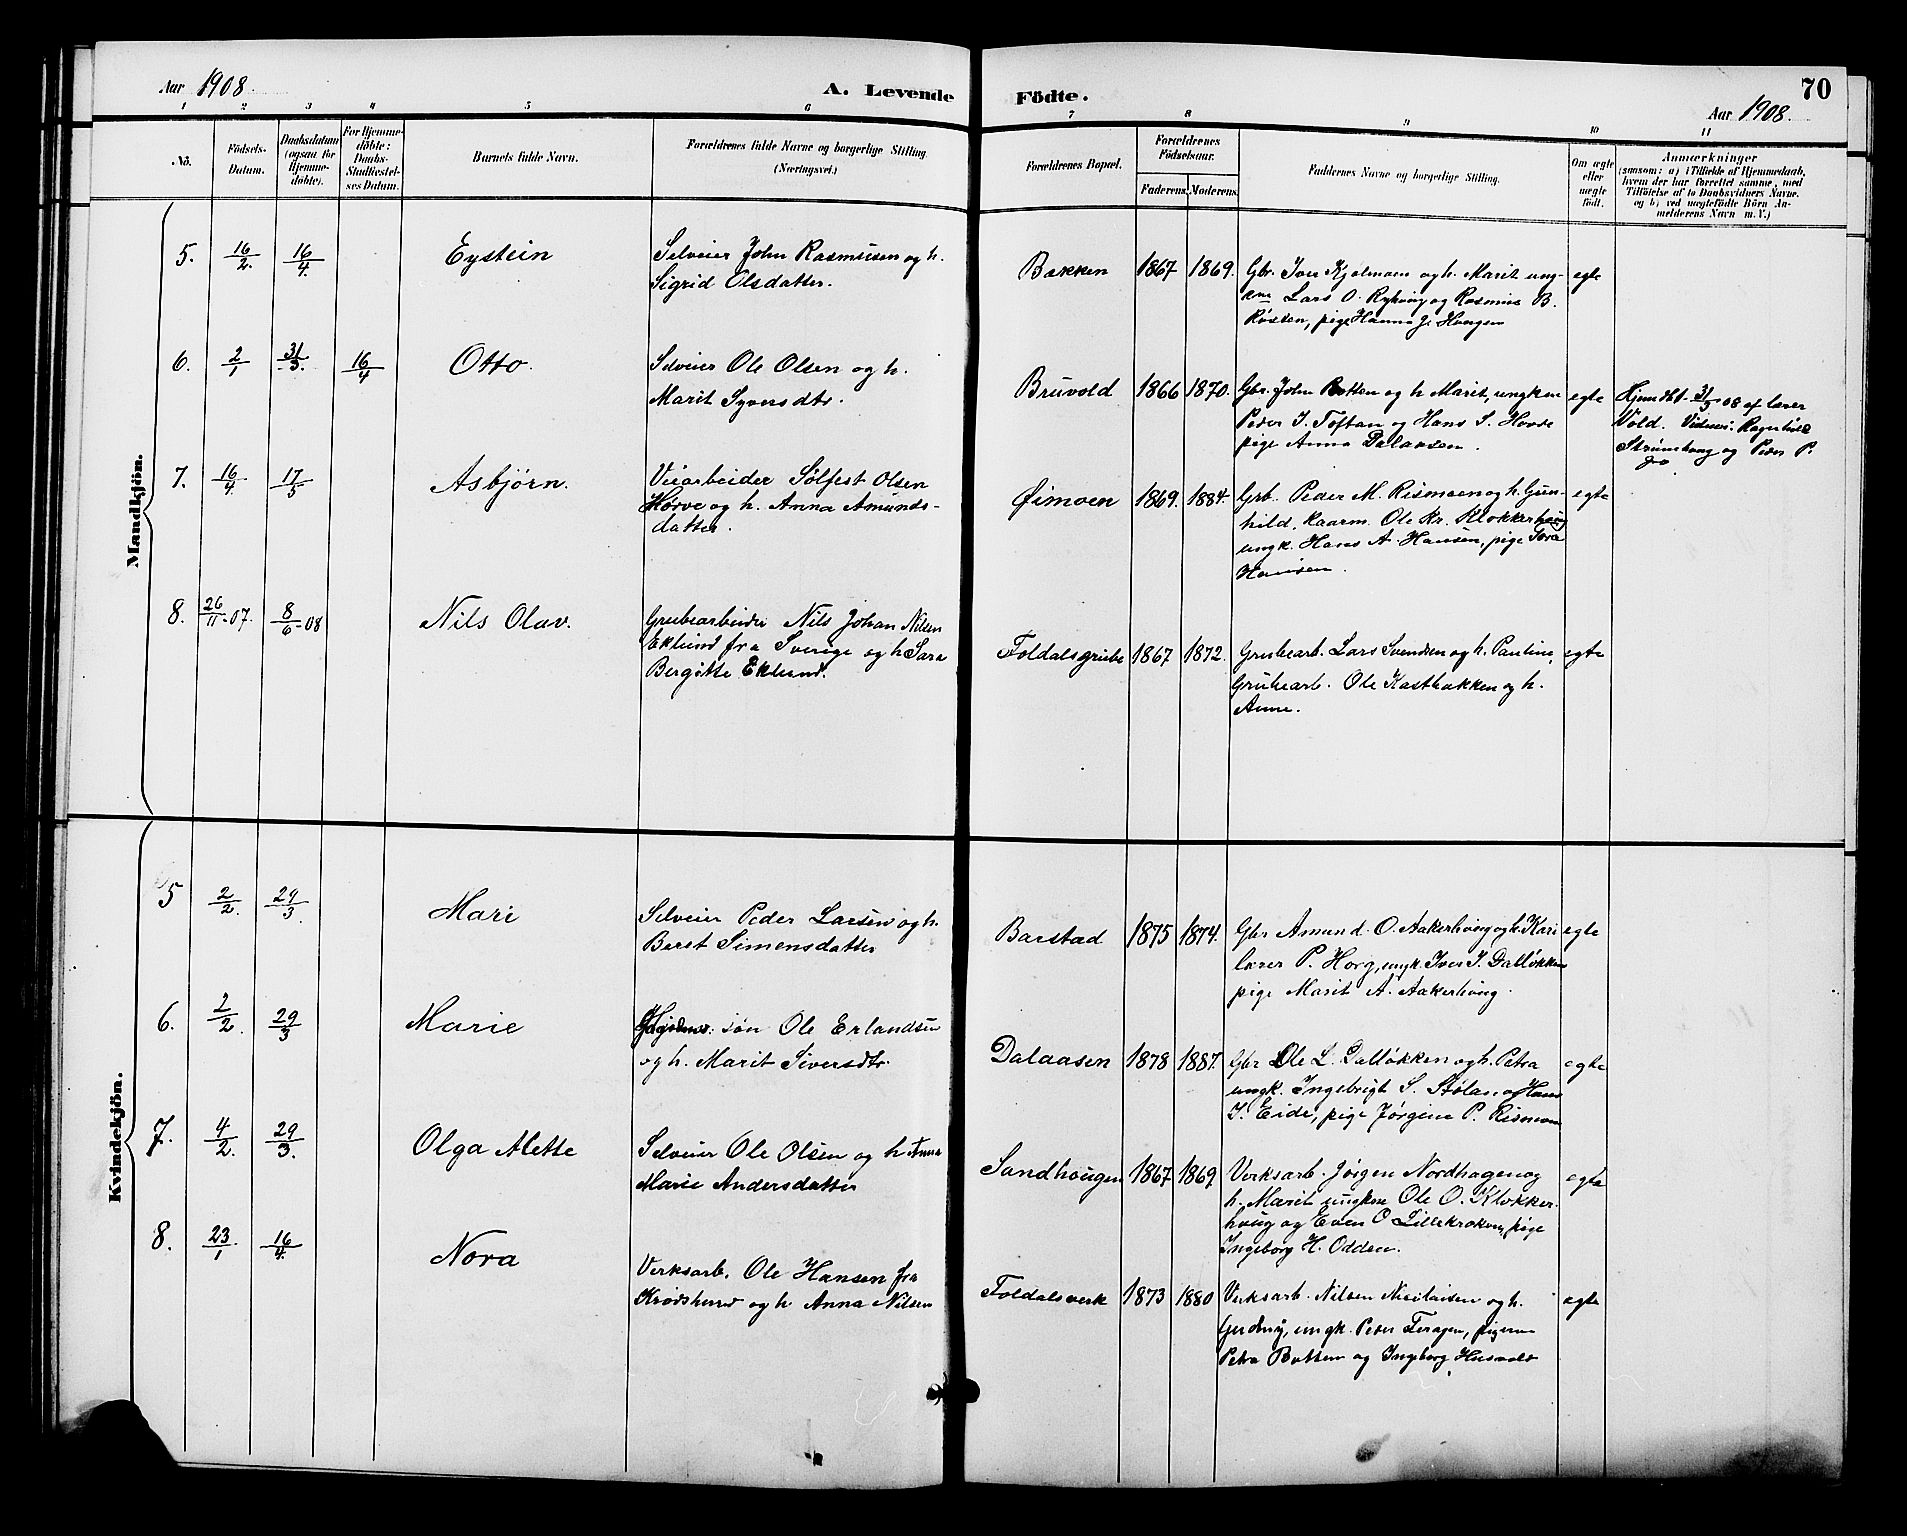 Aar 1908.
A. Levende
Födte.
70
Aar 1908.
1 2 3 4 5 6 7 8 9 10 11
No.
Födsels-
Datum.
Daabsdatum
(ogsaa for
Hjemme-
döbte).
For Hjemme-
döbte:
Daabs-
Stadfæstel-
ses Datum.
Barnets fulde Navn.
Forældrenes fulde Navne og borgerlige Stilling
(Næringsvei.)
Forældrenes Bopæl.
Forældrenes
Födselsaar.
Faderens. Moderens.
Faddernes Navne og borgerlige Stilling.
Om ægte
eller
uægte
födt.
Anmærkninger
(saasom: a) i Tilfælde af Hjemmedaab,
hvem der har forrettet samme, med
Tilföielse af to Daabsvidners Navne.
og b) ved uægtefödte Börn An-
melderens Navn m. V.)
Mandkjön.
5. 16/2. 16/4. Eystein
Selveier John Rasmusen og h.
Sigrid Olsdatter.
Bakken 1867 1869.
Gbr. Iver Kjølmoen og h. Marit ung-
Lars O. og Rasmus B.
pige Hanna Haugen
egte
6. 2/1 31/3. 16/4 Otto.
Selveier Ole Olsen og h.
Marit Syversdtr.
Bruvold 1866 1870.
Gbr. John Botten og h Marit, ungken
Peder I. Toftan og Hans S. Hovde
pige Anna Dalaasen.
egte
Hjemdbt 31/3 08 af lærer
Vold. Vidner: Ragnhild
Strømhaug og Peder P.
7. 16/4 17/5 Asbjörn.
Veiarbeider Sølfest Olsen
Hørve og h. Anna Amunds-
datter.
Øimoen 1869. 1884.
Grb. Peder M. Rismoen og h. Gun-
hild, kaarm. Ole Kr. Klokkerhaug
ungk. Hans A. Hansen, pige
Hansen.
egte
8. 26/11-07. 8/6-08 Nils Olav.
Grubearbeider Nils Johan Nilsen
Eklund fra Sverige og h Sara
Bergitte Eklund.
Foldalsgrube 1867 1872.
Grubearb. Lars Svendsen og h. Pauline,
Grubearb. Ole Kastbakken og h.
Anne.
egte
Kvindekjön.
5 2/2. 29/3. Mari
Selveier Peder Larsen og h.
Beret Simensdatter
Barstad 1875 1874.
Gbr Amund O. Aakerhaug og h. Kari
lærer P. Horg, ungk. Iver I. Dalløkken
pige Marit A. Aakerhaug.
egte
6. 2/2. 29/3 Marie
søn Ole Erlandsen
og h. Marit Siversdtr.
Dalaasen 1878 1887.
Gbr Ole L. Dalløkken og h. Petra
ungk. Ingebrigt S. Stølan og Hans
I. Eide, pige Jørgine P. Rismoen
egte
7. 4/2. 29/3. Olga Alette
Selveier Ole Olsen og h Anna
Marie Andersdatter
Sandhaugen 1867 1869
Verksarb. Jörgen Nordhagen og
h. Marit ungkne Ole O. Klokker-
haug og Even O Lillekroken, pige
Ingeborg H. Odden.
egte
8. 23/1 16/4. Nora
Verksarb. Ole Hansen fra
Krødsherred og h Anna Nilsen
Foldalsverk 1873 1880
Verksarb. Nilsen Nicolaisen og h.
ungk. Peter pigerne
Petra Botten og Ingeborg Husvolt
egte